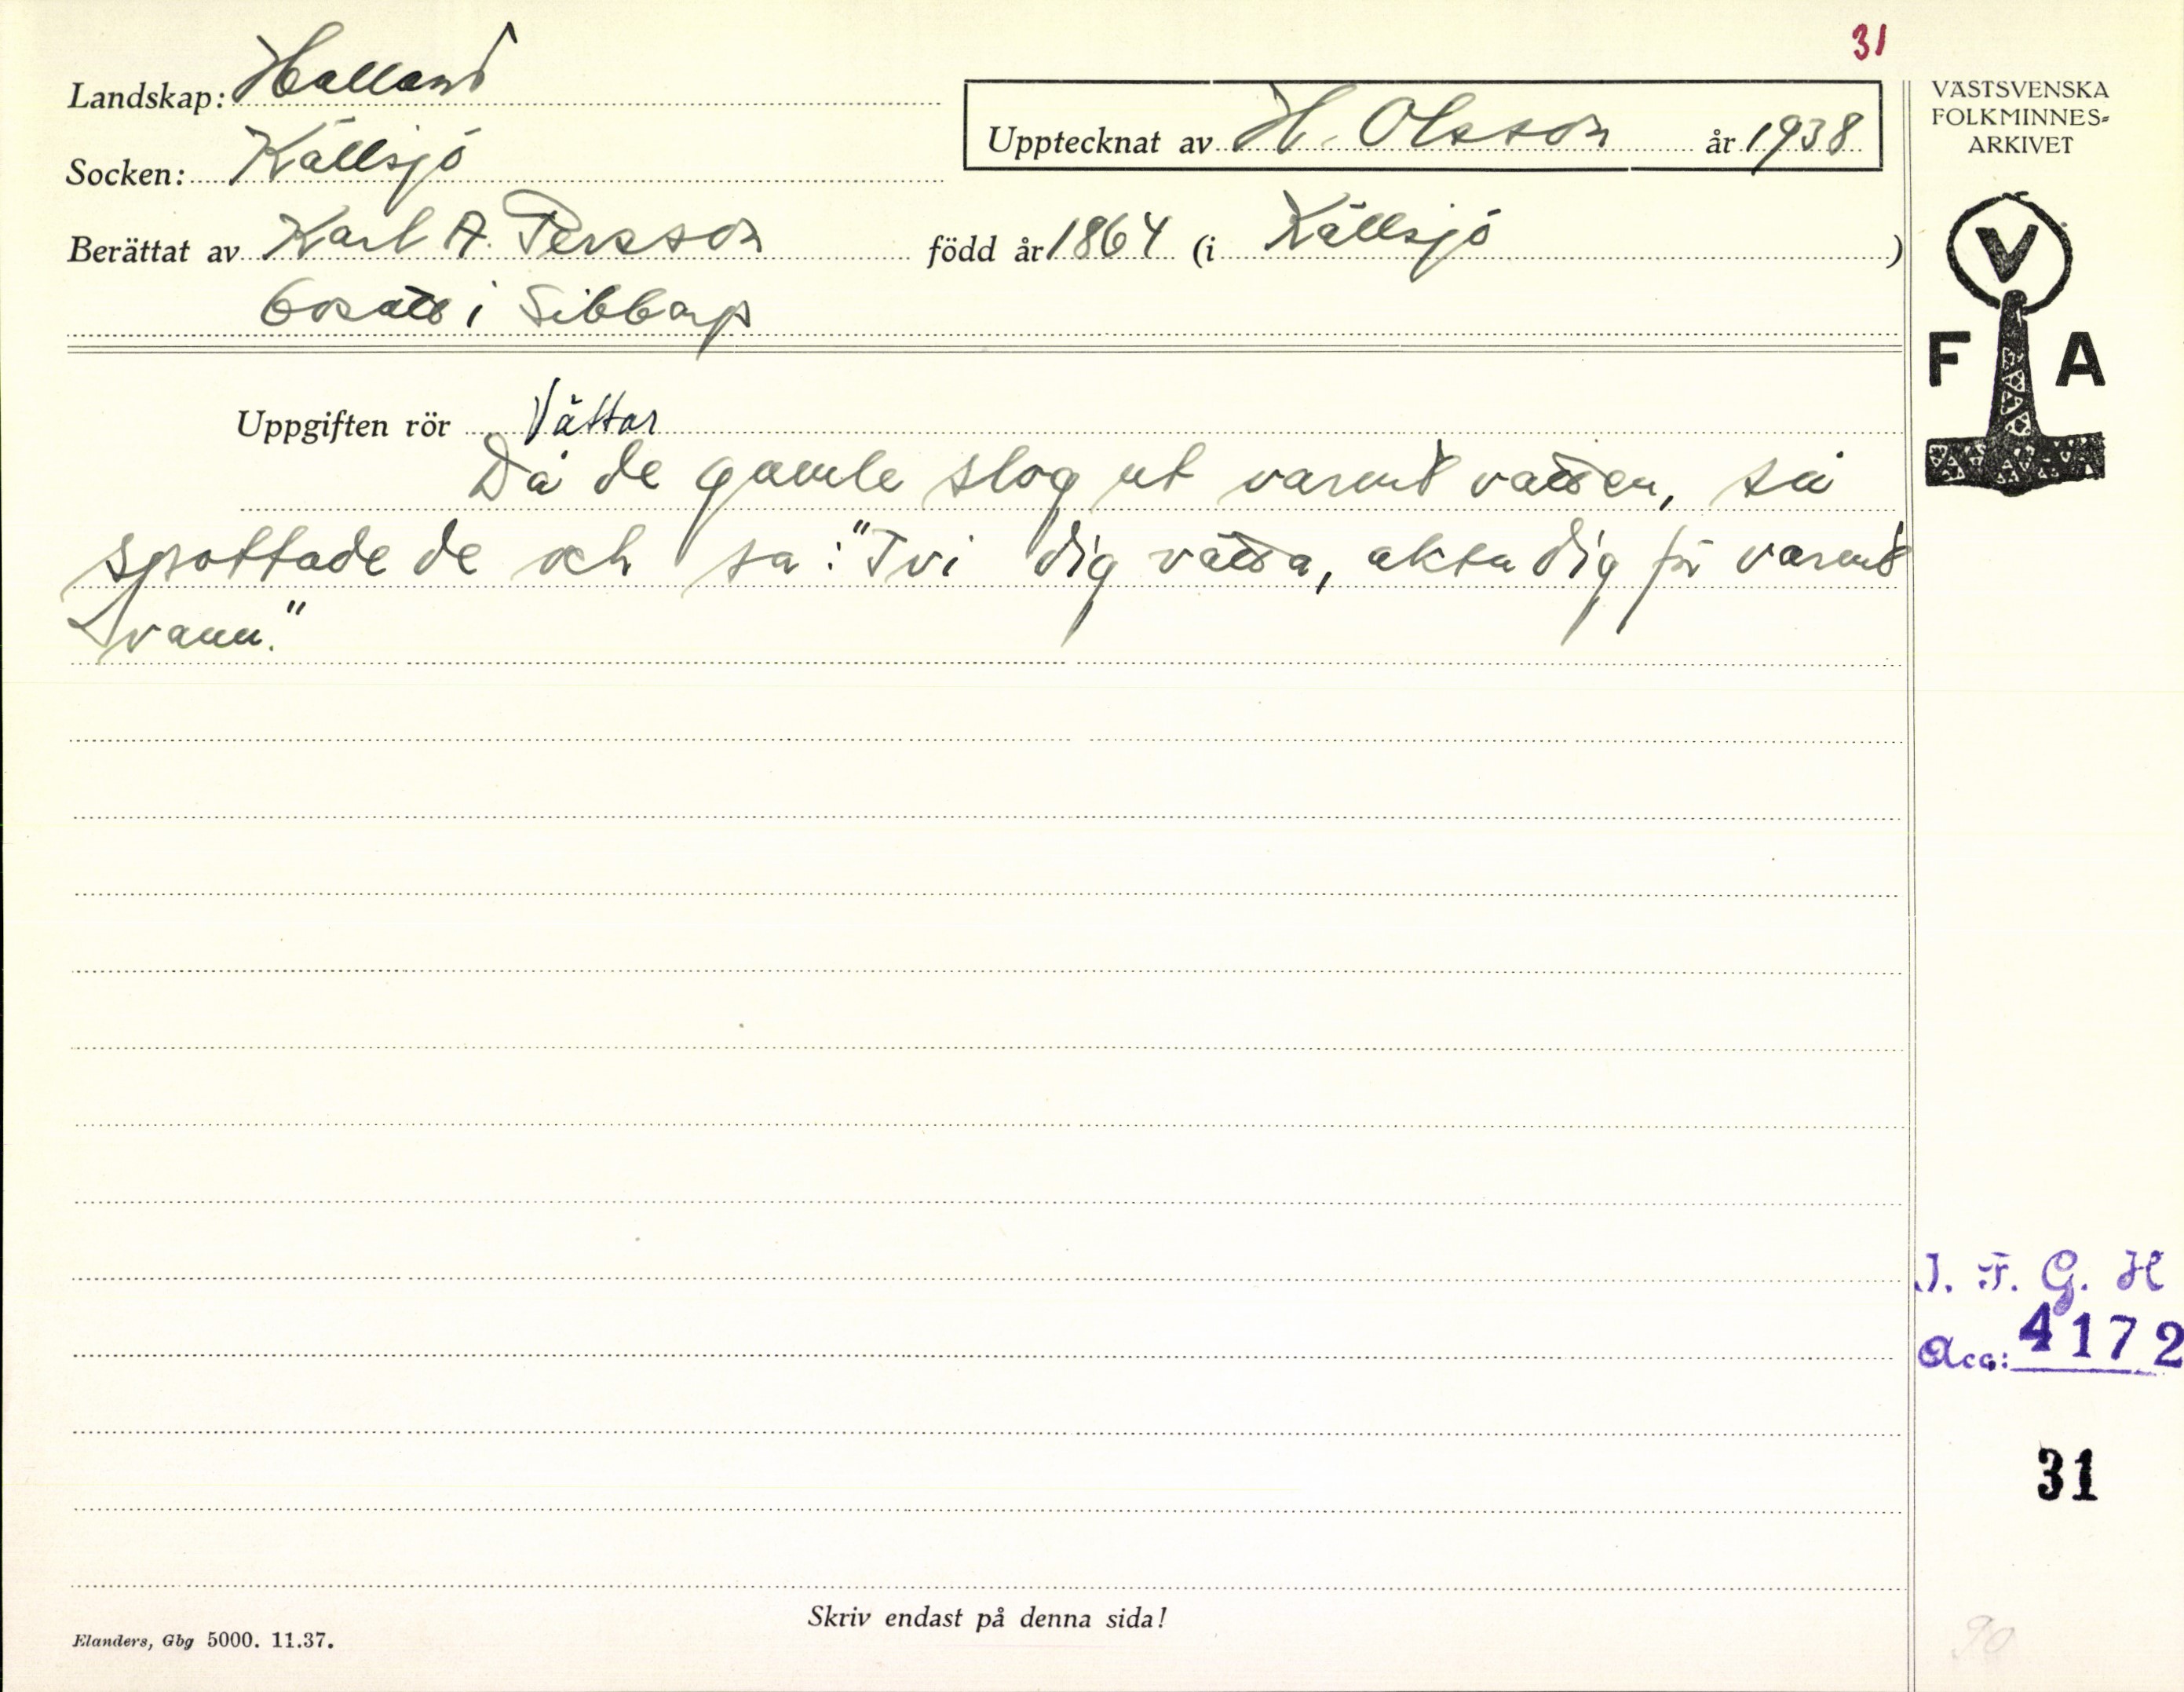 31
Landskap: Halland
Socken: Källsjö
Upptecknat av H. Olsson år 1938
Berättat av Karl A. Persson född år 1864 (i Källsjö)
bosatt i Sibbarp
VÄSTSVENSKA
FOLKMINNES=
ARKIVET
V
F A
Uppgiften rör Vättar
Då de gamle slog ut varmt vatten, så
spottade de och sa: "Tvi dig vätta, akta dig för varmt
vann."
I. F. G. H
Acc: 4172
31
Skriv endast på denna sida!
Elanders, Gbg 5000. 11.37.